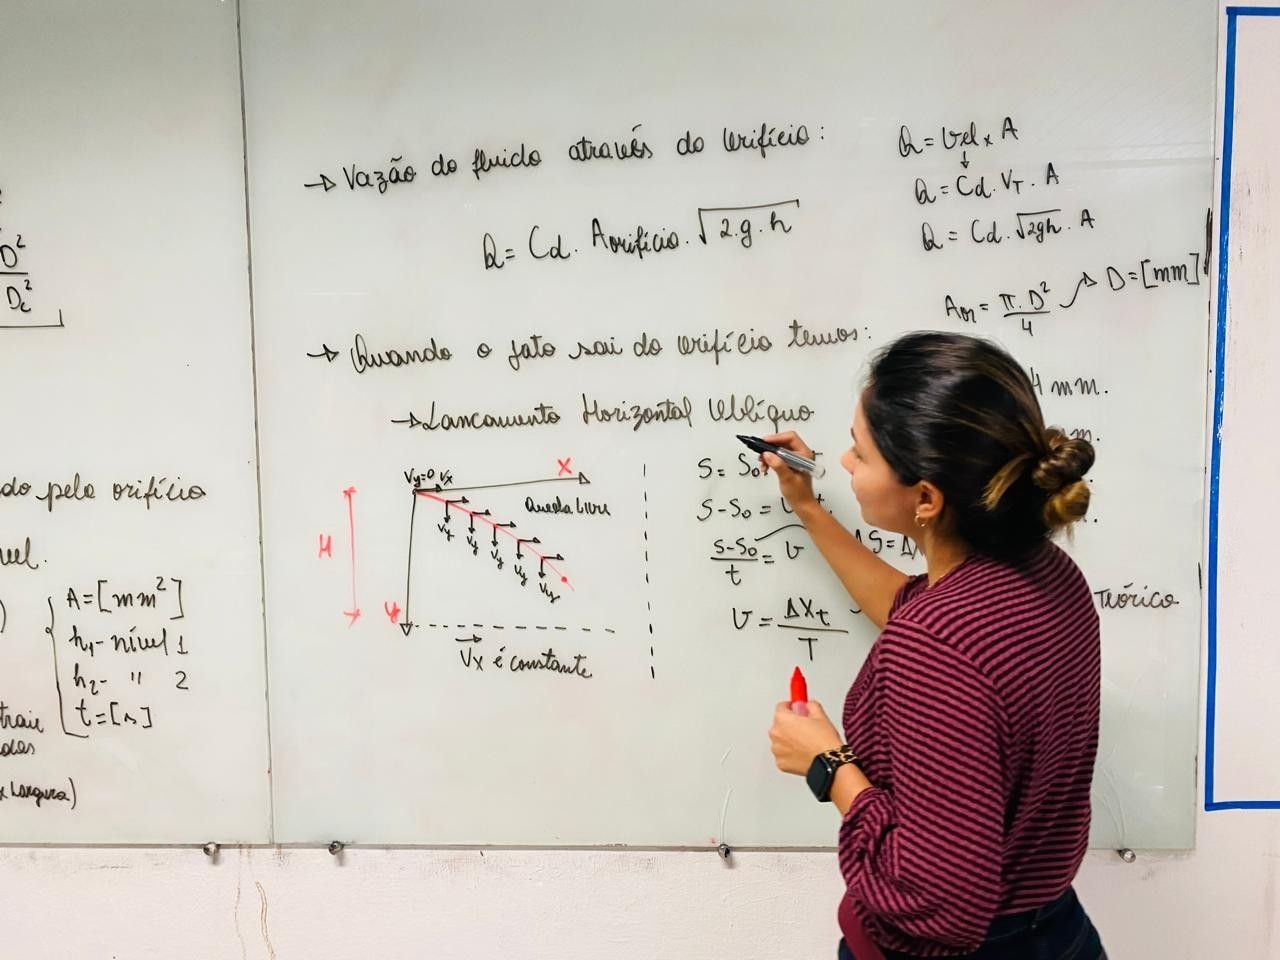 D²
D꜀²
do pelo orifício
A=[mm²]
h₁-nível 1
h₂- " 2
t=[s]
x Largura)
→ Vazão do fluido através do orifício:
Q= Cd. Aorifício. √2.g.h
→ Quando o jato sai do orifício temos:
→ Lançamento Horizontal Oblíquo
Vy=0 Vx
X
Queda Livre
Vy Vy Vy Vy Vy
H
y
Vx é constante
Q = Vel x A
Q = Cd. VT. A
Q = Cd. √2gh. A
Aor = π. D²/4 → D=[mm]
4 mm.
S= S₀
S-S₀ =
S-S₀/t = v
V = ΔXt/T
Teórico